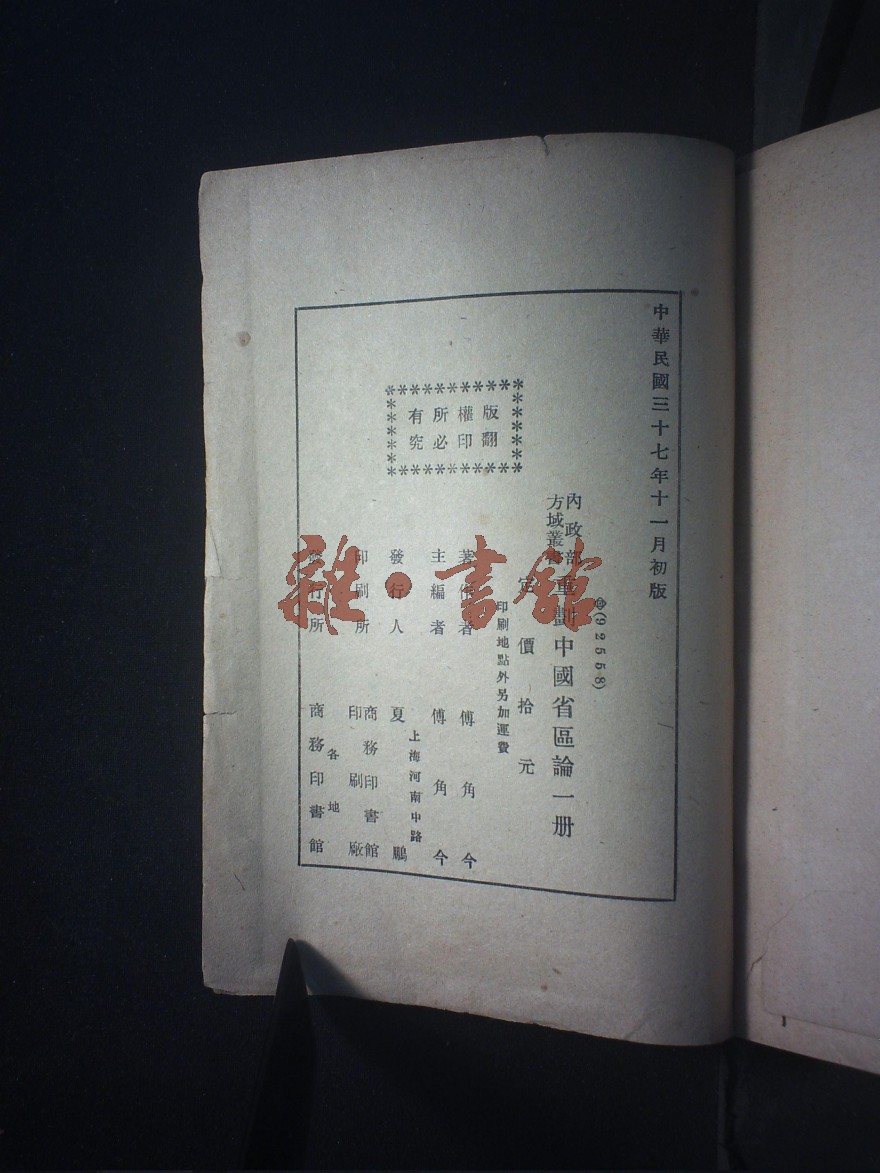 中華民國三十七年十一月初版
(92558)
內政部
方域叢書
重劃中國省區論一册
定價拾元
印刷地點外另加運費
版權所有
翻印必究
著作者 傅角今
主編者 傅角今
上海河南中路
發行人 夏鵬
印刷所 商務印書館印刷廠
各地
發行所 商務印書館
雜·書館